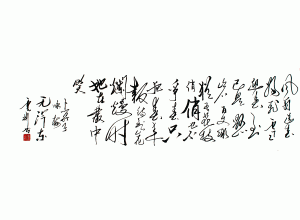 风雨送春
归飞雪迎
春到
已是悬
崖百丈冰
犹有花枝
俏俏也不
争春只
把春来
报待到山花
爛熳时
她在叢中
笑
卜算子
咏梅
毛泽东